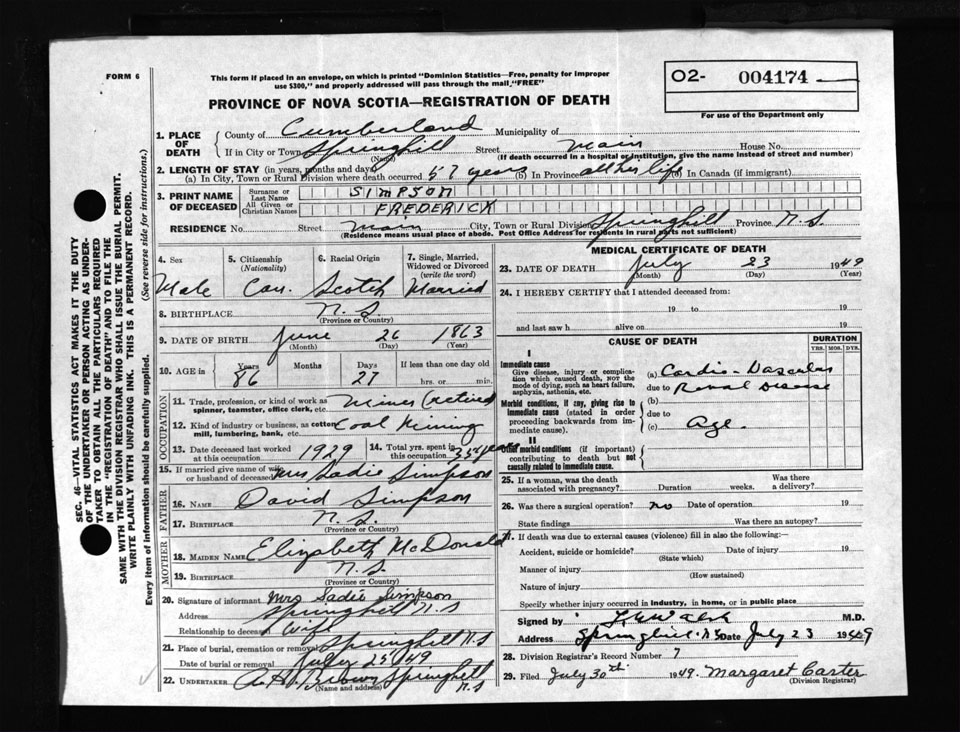 FORM 6
This form if placed in an envelope, on which is printed "Dominion Statistics—Free, penalty for improper
use $300," and properly addressed will pass through the mail "FREE"
O2- 004174
For use of the Department only
PROVINCE OF NOVA SCOTIA—REGISTRATION OF DEATH
1. PLACE OF DEATH County of Cumberland Municipality of
If in City or Town Springhill Street Main House No.
(Name) (If death occurred in a hospital or institution, give the name instead of street and number)
2. LENGTH OF STAY (in years, months and days)
(a) In City, Town or Rural Division where death occurred 57 years (b) In Province all his life (c) In Canada (if immigrant)
3. PRINT NAME OF DECEASED Surname or Last Name SIMPSON
All Given or Christian Names FREDERICK
RESIDENCE No. Street Main City, Town or Rural Division Springhill Province N.S.
(Residence means usual place of abode. Post Office Address for residents in rural parts not sufficient)
4. Sex Male
5. Citizenship (Nationality) Can.
6. Racial Origin Scotch
7. Single, Married, Widowed or Divorced (write the word) Married
8. BIRTHPLACE N.S.
(Province or Country)
9. DATE OF BIRTH June 26 1863
(Month) (Day) (Year)
10. AGE in Years 86 Months Days 27 If less than one day old hrs. or min.
OCCUPATION
11. Trade, profession, or kind of work as spinner, teamster, office clerk, etc. Miner (retired
12. Kind of industry or business, as cotton mill, lumbering, bank, etc. Coal Mining
13. Date deceased last worked at this occupation 1929
14. Total yrs. spent in this occupation 35 years
15. If married give name of wife or husband of deceased Mrs Sadie Simpson
FATHER
16. NAME David Simpson
17. BIRTHPLACE N.S.
(Province or Country)
MOTHER
18. MAIDEN NAME Elizabeth McDonald
19. BIRTHPLACE N.S
(Province or Country)
20. Signature of informant Mrs Sadie Simpson
Address Springhill N.S
Relationship to deceased Wife
21. Place of burial, cremation or removal Springhill N.S
Date of burial or removal July 25 / 49
22. UNDERTAKER A.H. Brown Springhill N.S
(Name and address)
MEDICAL CERTIFICATE OF DEATH
23. DATE OF DEATH July 23 1949
(Month) (Day) (Year)
24. I HEREBY CERTIFY that I attended deceased from:
19 to 19
and last saw h alive on 19
CAUSE OF DEATH
DURATION
YRS. MOS. DYS.
I
Immediate cause
Give disease, injury or complication which caused death, NOT the mode of dying, such as heart failure, asphyxia, asthenia, etc.
(a) Cardio-Vascular
due to Renal Disease
Morbid conditions, if any, giving rise to immediate cause (stated in order proceeding backwards from immediate cause).
(b)
due to
(c) Age.
II
Other morbid conditions (if important) contributing to death but not causally related to immediate cause.
25. If a woman, was the death associated with pregnancy? Duration weeks. Was there a delivery?
26. Was there a surgical operation? no Date of operation 19
State findings Was there an autopsy?
27. If death was due to external causes (violence) fill in also the following:—
Accident, suicide or homicide? Date of injury 19
(State which)
Manner of injury
(How sustained)
Nature of injury
Specify whether injury occurred in industry, in home, or in public place
Signed by M.D.
Address Springhill N.S Date July 23 1949
28. Division Registrar's Record Number 7
29. Filed July 30th 1949. Margaret Carter
(Division Registrar)
SEC. 46—VITAL STATISTICS ACT MAKES IT THE DUTY
OF THE UNDERTAKER OR PERSON ACTING AS UNDER-
TAKER TO OBTAIN ALL THE PARTICULARS REQUIRED
IN THE "REGISTRATION OF DEATH" AND TO FILE THE
SAME WITH THE DIVISION REGISTRAR WHO SHALL ISSUE THE BURIAL PERMIT.
WRITE PLAINLY WITH UNFADING INK. THIS IS A PERMANENT RECORD.
Every item of information should be carefully supplied. (See reverse side for instructions.)